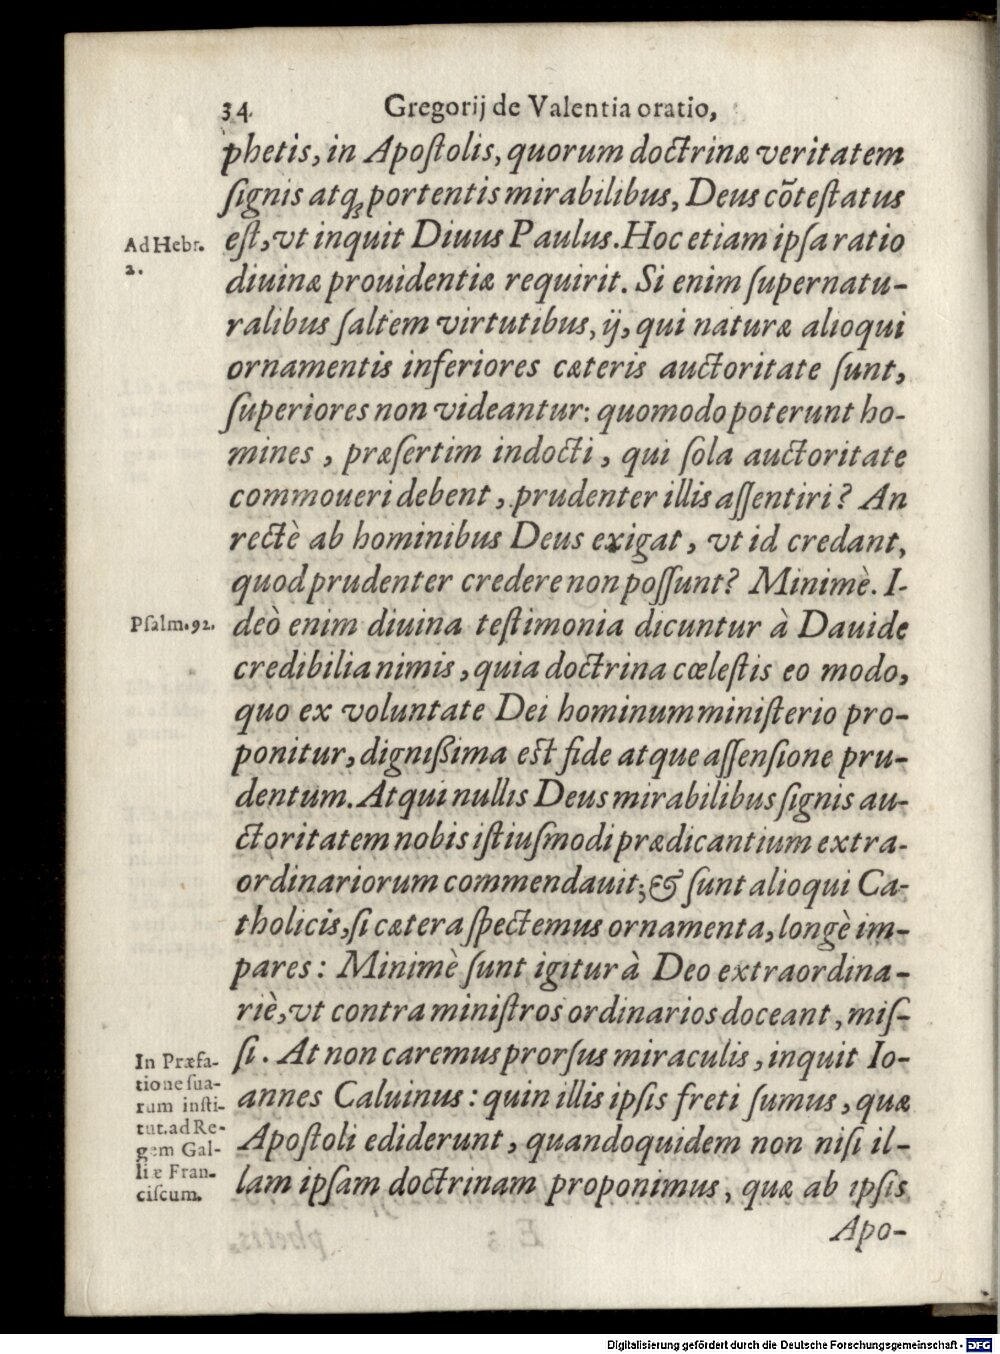 34 Gregorij de Valentia oratio,
phetis, in Apoſtolis, quorum doctrinæ veritatem
ſignis atq́; portentis mirabilibus, Deus cõteſtatus
Ad Hebr. 2.
eſt, vt inquit Diuus Paulus. Hoc etiam ipſa ratio
diuinæ prouidentiæ requirit. Si enim ſupernatu-
ralibus ſaltem virtutibus, ij, qui naturæ alioqui
ornamentis inferiores cæteris auctoritate ſunt,
ſuperiores non videantur: quomodo poterunt ho-
mines, præſertim indocti, qui ſola auctoritate
commoueri debent, prudenter illis aſſentiri? An
rectè ab hominibus Deus exigat, vt id credant,
quod prudenter credere non poſſunt? Minimè. I-
Pſalm. 92.
deò enim diuina teſtimonia dicuntur à Dauide
credibilia nimis, quia doctrina cœleſtis eo modo,
quo ex voluntate Dei hominum miniſterio pro-
ponitur, digniſsima eſt fide atque aſſenſione pru-
dentum. Atqui nullis Deus mirabilibus ſignis au-
ctoritatem nobis iſtiuſmodi prædicantium extra-
ordinariorum commendauit; & ſunt alioqui Ca-
tholicis, ſi cætera ſpectemus ornamenta, longè im-
pares: Minimè ſunt igitur à Deo extraordina-
riè, vt contra miniſtros ordinarios doceant, miſ-
ſi. At non caremus prorſus miraculis, inquit Io-
In Præfa-
tione ſua-
rum inſti-
tut. ad Re-
gem Gal-
liæ Fran-
ciſcum.
annes Caluinus: quin illis ipſis freti ſumus, quæ
Apoſtoli ediderunt, quandoquidem non niſi il-
lam ipſam doctrinam proponimus, quæ ab ipſis
Apo-
Digitalisierung gefördert durch die Deutsche Forschungsgemeinschaft - DFG